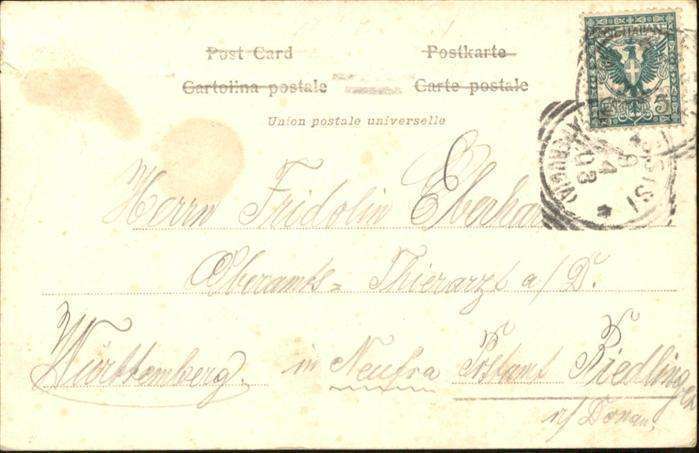 Post Card Postkarte
Cartolina postale Carte postale
Union postale universelle
5
4
03
Herrn Fridolin
Oberamts= Thierarzt a/D.
Württemberg. in Neufra Postamt Riedlingen
a/ Donau,